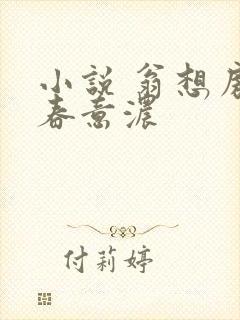 小説 翁想
春意濃
付莉婷